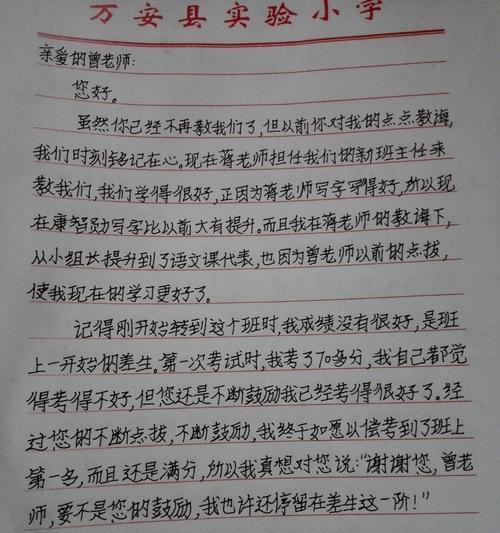 万安县实验小学
亲爱的曾老师:
您好。
虽然你已经不再教我们了,但以前你对我的点点教诲,
我们时刻铭记在心。现在蒋老师担任我们的新班主任来
教我们,我们学得很好,正因为蒋老师写字写得好,所以现
在康智勋写字比以前大有提升。而且我在蒋老师的教诲下,
从小组长提升到了语文课代表,也因为曾老师以前的点拔,
使我现在的学习更好了。
记得刚开始转到这个班时,我成绩没有很好,是班
上一开始的差生。第一次考试时,我考了70多分,我自己都觉
得考得不好,但您还是不断鼓励我已经考得很好了。经
过您的不断点拔,不断鼓励,我终于如愿以偿考到了班上
第一名,而且还是满分,所以我真想对您说:“谢谢您,曾老
师,要不是您的鼓励,我也许还停留在差生这一阶!”